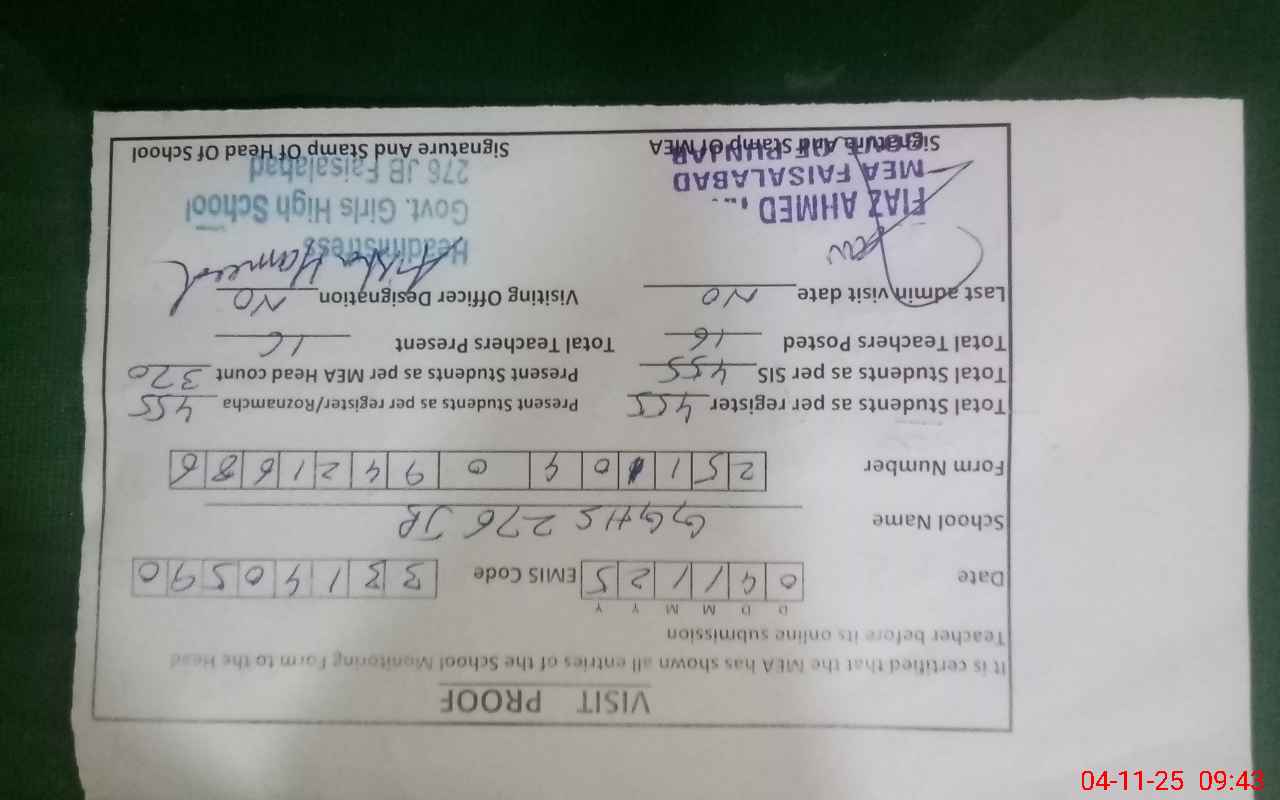 VISIT PROOF
It is certified that the MEA has shown all entries of the School Monitoring Form to the Head
Teacher before its online submission
D D M M Y Y
Date 0 4 1 1 2 5 EMIS Code 3 3 1 4 0 5 9 0
School Name GGHS 276 JB
Form Number 2 5 1 1 0 4 0 9 4 2 1 6 8 6
Total Students as per register 455 Present Students as per register/Roznamcha 455
Total Students as per SIS 455 Present Students as per MEA Head count 320
Total Teachers Posted 16 Total Teachers Present 16
Last admin visit date NO Visiting Officer Designation NO
Hameed
Headmistress
FIAZ AHMED Govt. Girls High School
MEA FAISALABAD 276 JB Faisalabad
OF PUNJAB
Signature And Stamp Of MEA Signature And Stamp Of Head Of School
04-11-25 09:43